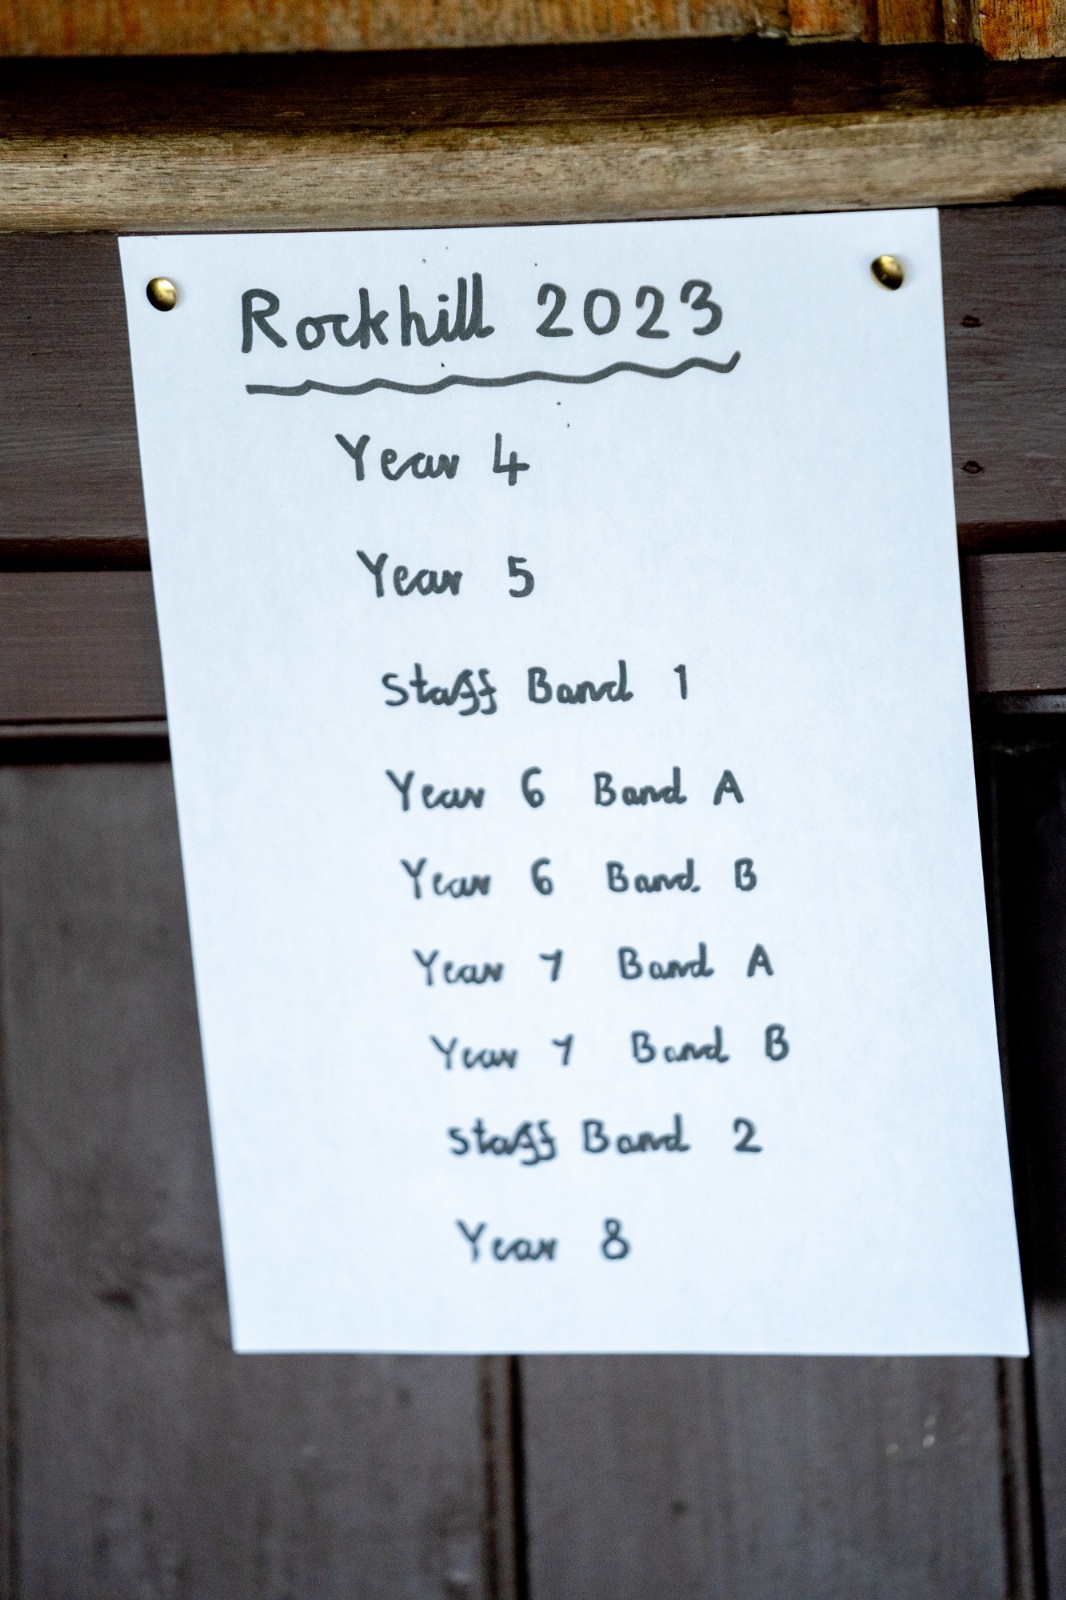 Rockhill 2023
Year 4
Year 5
Staff Band 1
Year 6 Band A
Year 6 Band B
Year 7 Band A
Year 7 Band B
Staff Band 2
Year 8